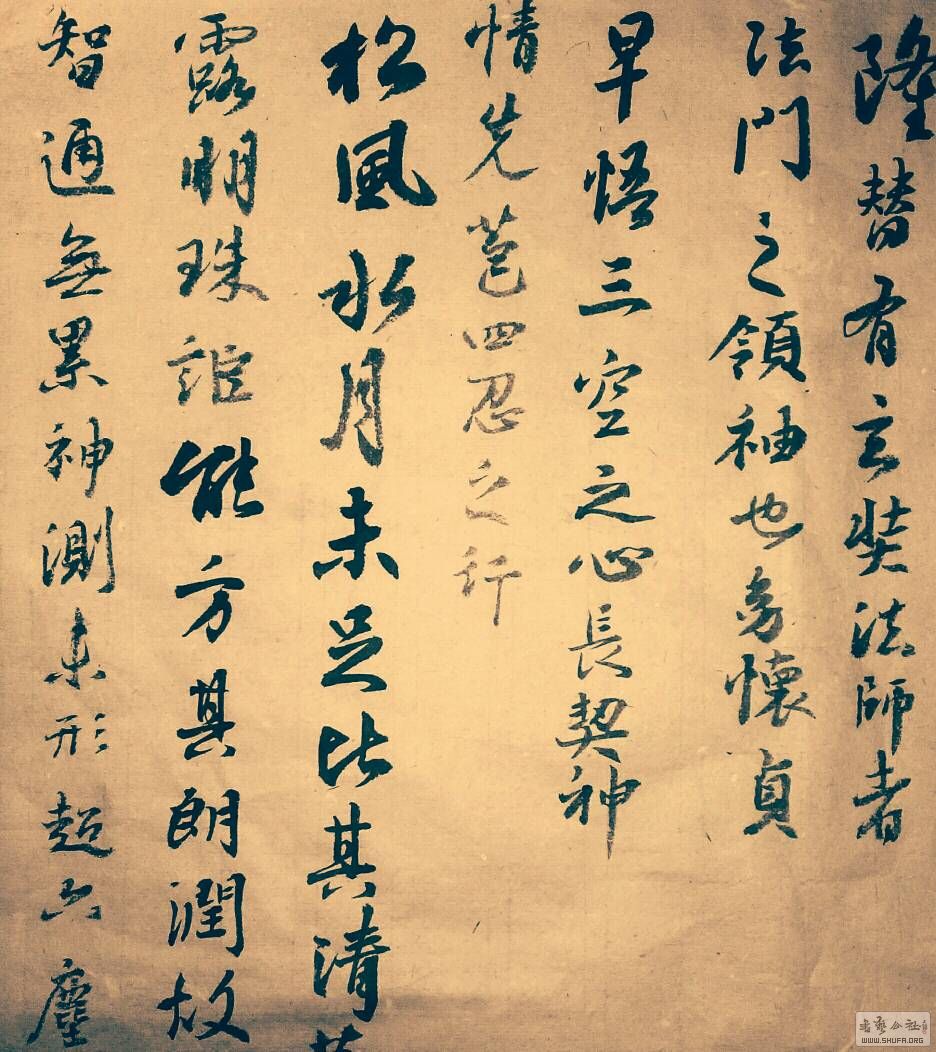 隆替有玄奘法师者
法門之領袖也㓜懷貞
早悟三空之心長契神
情先苞四忍之行
松風水月未足比其清
露明珠詎能方其朗潤故
智通無累神測未形超六塵
書藝公社
WWW.SHUFA.ORG